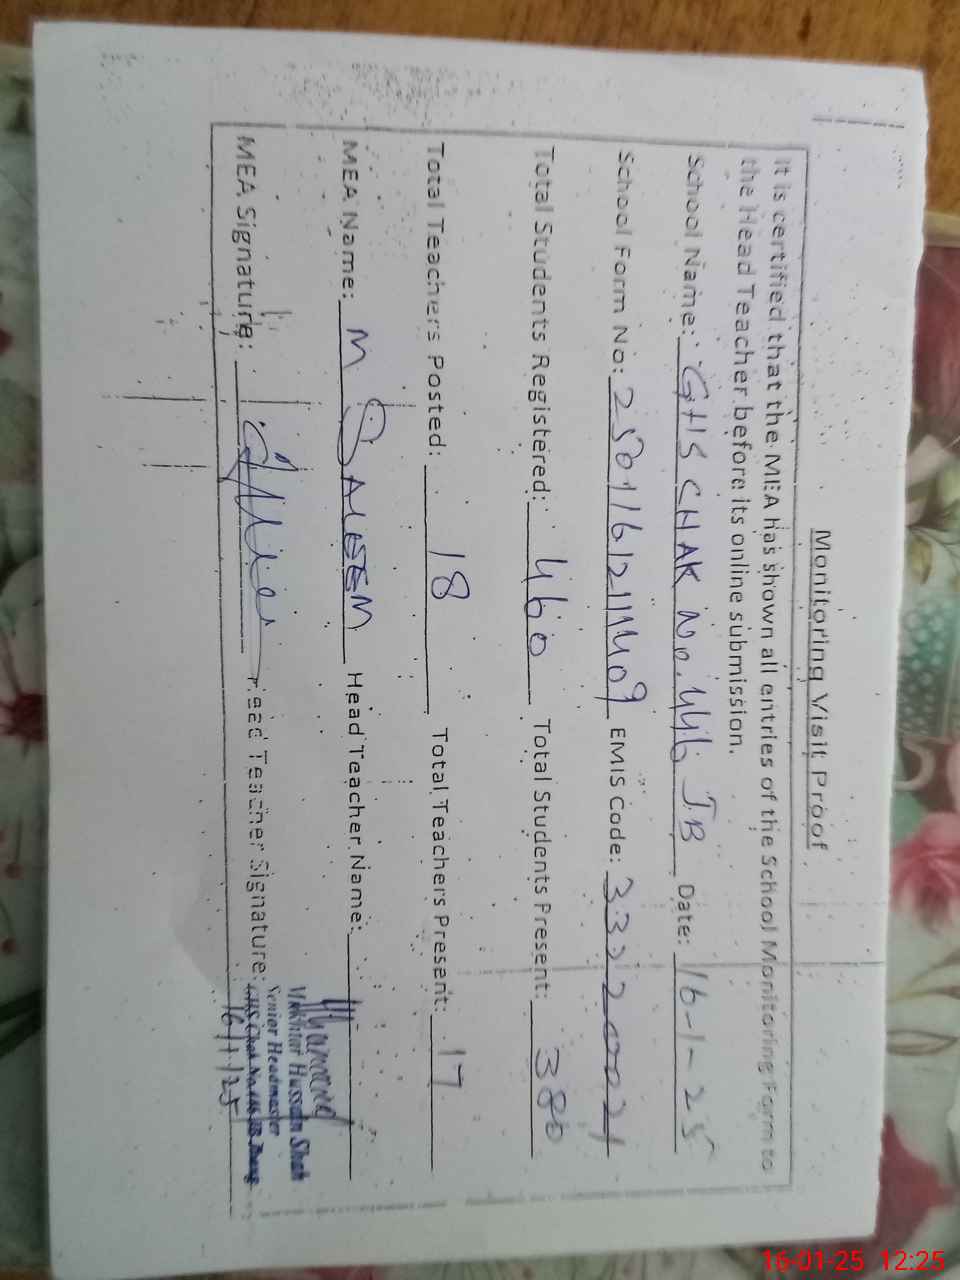 Monitoring Visit Proof
It is certified that the MEA has shown all entries of the School Monitoring Form to
the Head Teacher before its online submission.
School Name: GHS CHAK No. 446 JB Date: 16-1-25
School Form No: EMIS Code:
Total Students Registered: 460 Total Students Present: 380
Total Teachers Posted: 18 Total Teachers Present: 17
MEA Name: M SALEEM Head Teacher Name:
MEA Signature: Head Teacher Signature:
Mukhtar Hussain Shah
Senior Headmaster
GHS Chak No. 446 JB Jhang
16/1/25
16-01-25 12:25